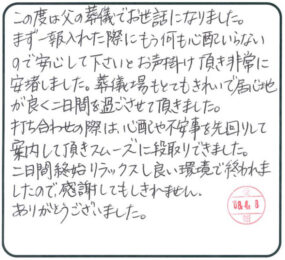 この度は父の葬儀でお世話になりました。
まず一報入れた際にもう何も心配いらない
ので安心して下さいとお声掛け頂き非常に
安堵しました。葬儀場もとてもきれいで居心地
が良く二日間を過ごさせて頂きました。
打ち合わせの際は、心配や不安事を先回りして
案内して頂きスムーズに段取りできました。
二日間終始リラックスし良い環境で終われま
したので感謝してもしきれません。
ありがとうございました。